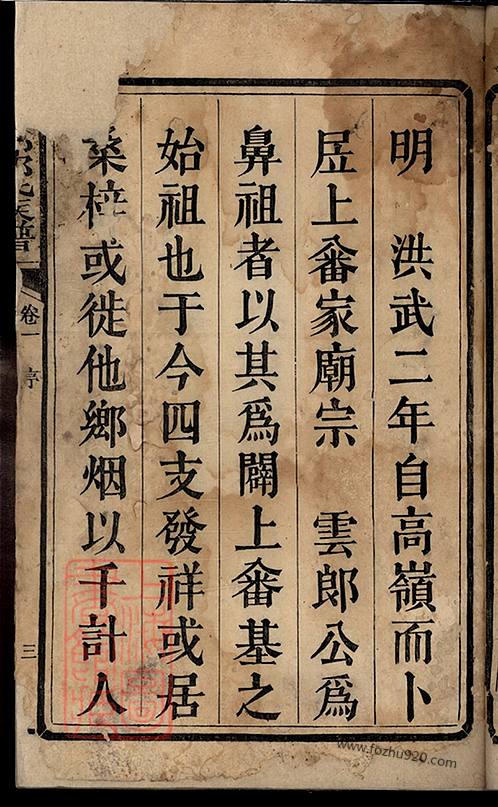 明　洪武二年自高嶺而卜
居上畨家廟宗　雲郎公爲
鼻祖者以其爲闢上畨基之
始祖也于今四支發祥或居
桑梓或徙他鄉烟以千計人
氏族譜
卷一　序
三
www.fozhu920.com